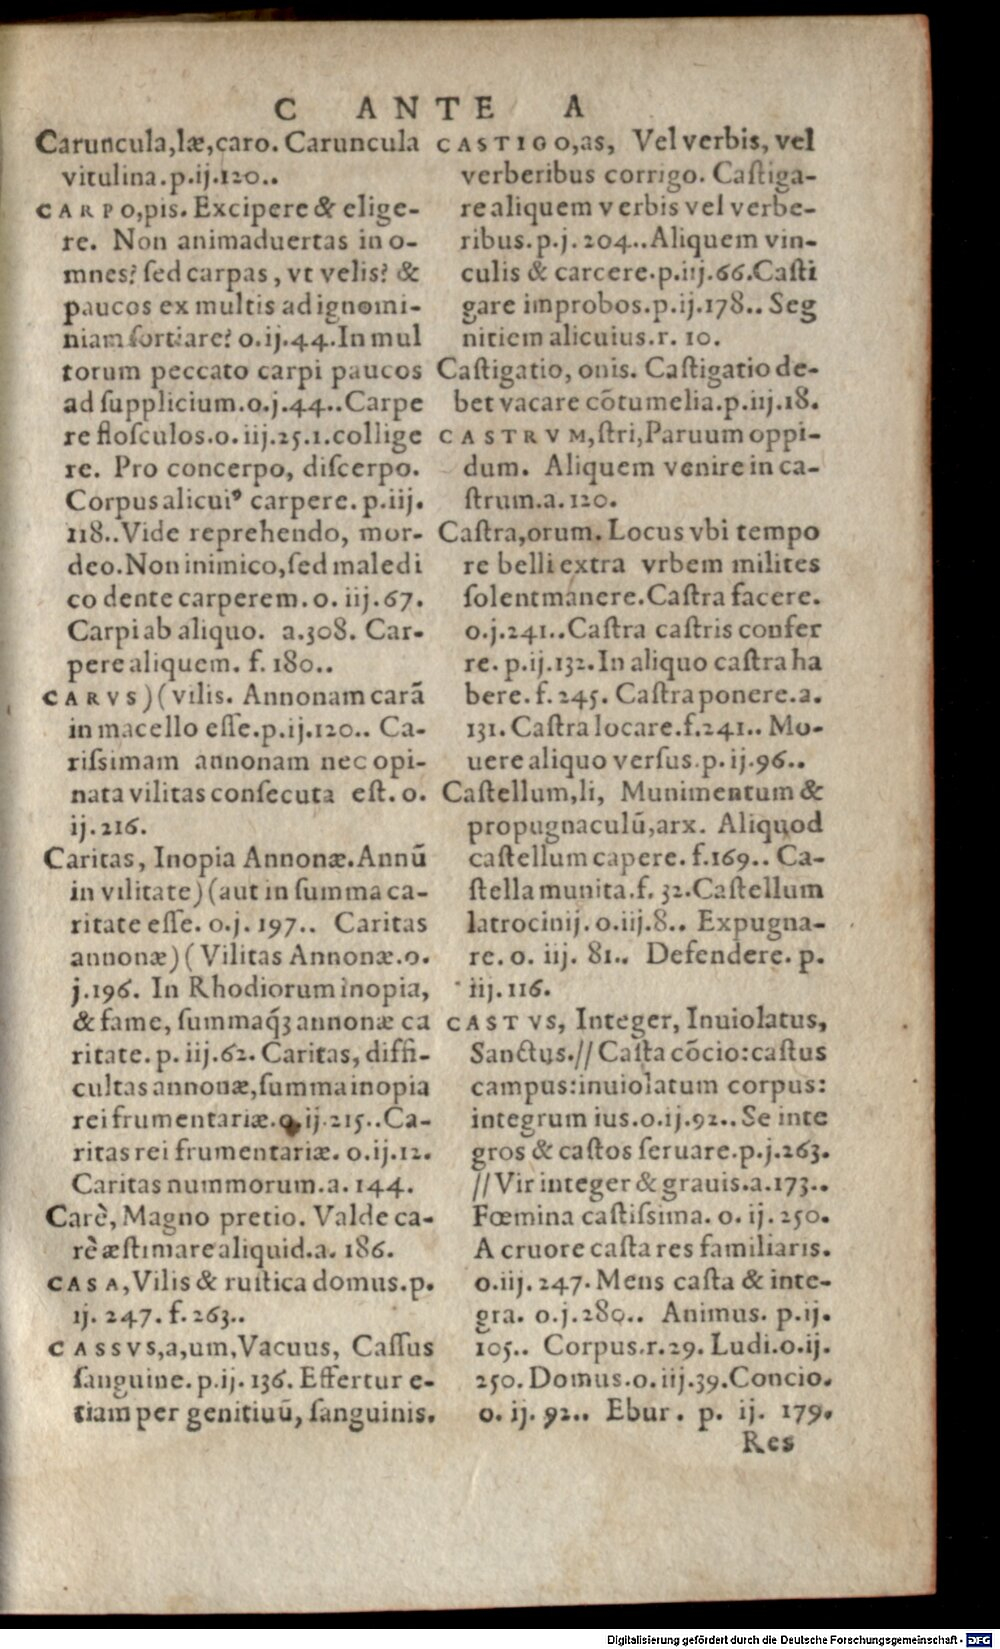 C ANTE A
Caruncula,læ,caro. Caruncula
vitulina.p.ij.120..
CARPO,pis. Excipere & elige-
re. Non animaduertas in o-
mnes? sed carpas, vt velis? &
paucos ex multis ad ignomi-
niam sortiare? o.ij.44.In mul
torum peccato carpi paucos
ad supplicium.o.j.44..Carpe
re flosculos.o.iij.25.1.collige
re. Pro concerpo, discerpo.
Corpus alicuiꝰ carpere. p.iij.
118..Vide reprehendo, mor-
deo.Non inimico,sed maledi
co dente carperem. o. iij.67.
Carpi ab aliquo. a.308. Car-
pere aliquem. f. 180..
CARVS)( vilis. Annonam carã
in macello esse.p.ij.120.. Ca-
rissimam annonam nec opi-
nata vilitas consecuta est. o.
ij.216.
Caritas, Inopia Annonæ.Annũ
in vilitate)(aut in summa ca-
ritate esse. o.j. 197.. Caritas
annonæ)( Vilitas Annonæ.o.
j.196. In Rhodiorum inopia,
& fame, summaq́ꝫ annonæ ca
ritate. p. iij.62. Caritas, diffi-
cultas annonæ,summa inopia
rei frumentariæ.o.ij.215..Ca-
ritas rei frumentariæ. o.ij.12.
Caritas nummorum.a. 144.
Carè, Magno pretio. Valde ca-
rè æstimare aliquid.a. 186.
CASA,Vilis & rustica domus.p.
ij. 247. f. 263..
CASSVS,a,um,Vacuus, Cassus
sanguine.p.ij. 136. Effertur e-
tiam per genitiuũ, sanguinis.
CASTIGO,as, Vel verbis, vel
verberibus corrigo. Castiga-
re aliquem verbis vel verbe-
ribus.p.j. 204..Aliquem vin-
culis & carcere.p.iij.66.Casti
gare improbos.p.ij.178.. Seg
nitiem alicuius.r. 10.
Castigatio, onis. Castigatio de-
bet vacare cõtumelia.p.iij.18.
CASTRVM,stri,Paruum oppi-
dum. Aliquem venire in ca-
strum.a. 120.
Castra,orum. Locus vbi tempo
re belli extra vrbem milites
solent manere.Castra facere.
o.j.241..Castra castris confer
re. p.ij.132.In aliquo castra ha
bere. f. 245. Castra ponere.a.
131. Castra locare.f.241.. Mo-
uere aliquo versus.p.ij.96..
Castellum,li, Munimentum &
propugnaculũ,arx. Aliquod
castellum capere. f.169.. Ca-
stella munita.f. 32.Castellum
latrocinij. o.iij.8.. Expugna-
re. o. iij. 81.. Defendere. p.
iij.116.
CASTVS, Integer, Inuiolatus,
Sanctus.// Casta cõcio:castus
campus:inuiolatum corpus:
integrum ius.o.ij.92..Se inte
gros & castos seruare.p.j.263.
// Vir integer & grauis.a.173..
Fœmina castissima. o. ij. 250.
A cruore casta res familiaris.
o.iij. 247. Mens casta & inte-
gra. o.j.280.. Animus. p.ij.
105.. Corpus.r.29. Ludi.o.ij.
250. Domus.o.iij.39.Concio.
o. ij. 92.. Ebur. p. ij. 179.
Res
Digitalisierung gefördert durch die Deutsche Forschungsgemeinschaft - DFG